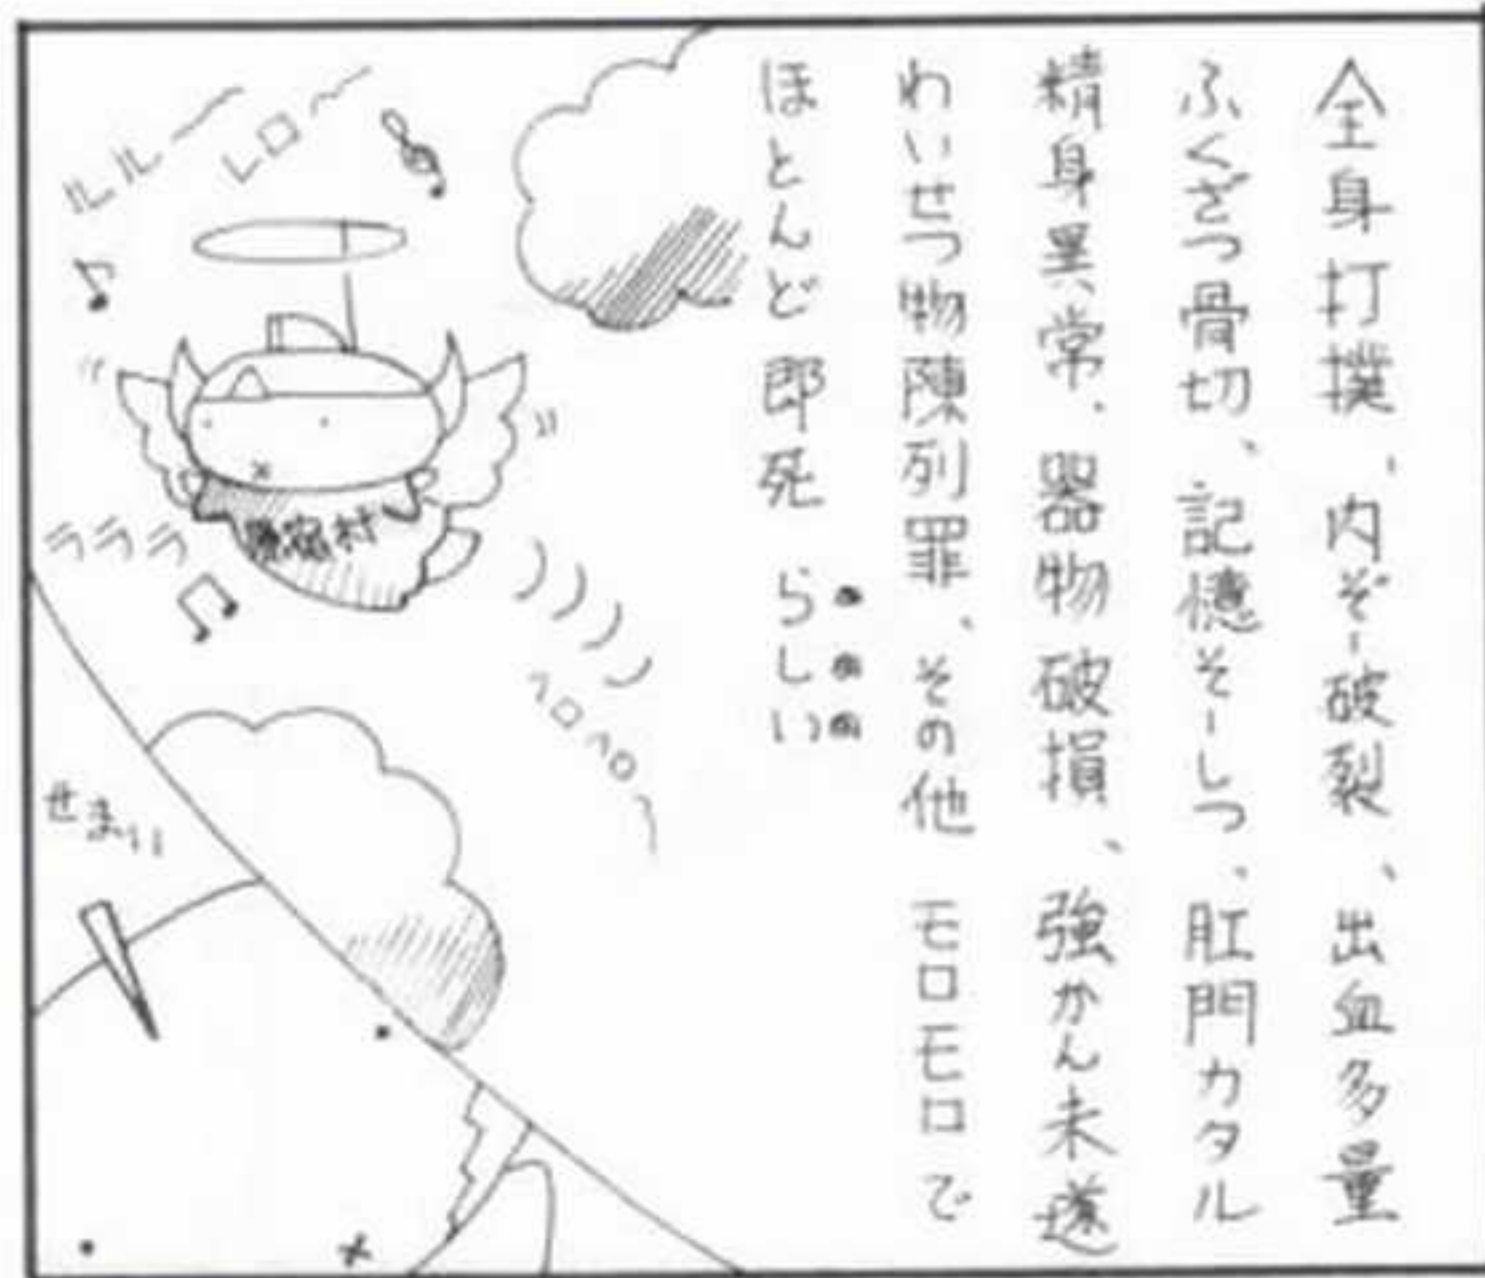 全身打撲、内ぞー破裂、出血多量
ふくざつ骨切、記憶そーしつ、肛門カタル
精身異常、器物破損、強かん未遂
わいせつ物陳列罪、その他 モロモロで
ほとんど即死 らしい
ルルー
レロ〜
ラララ
原宿村
ヘロヘロ〜
せまい